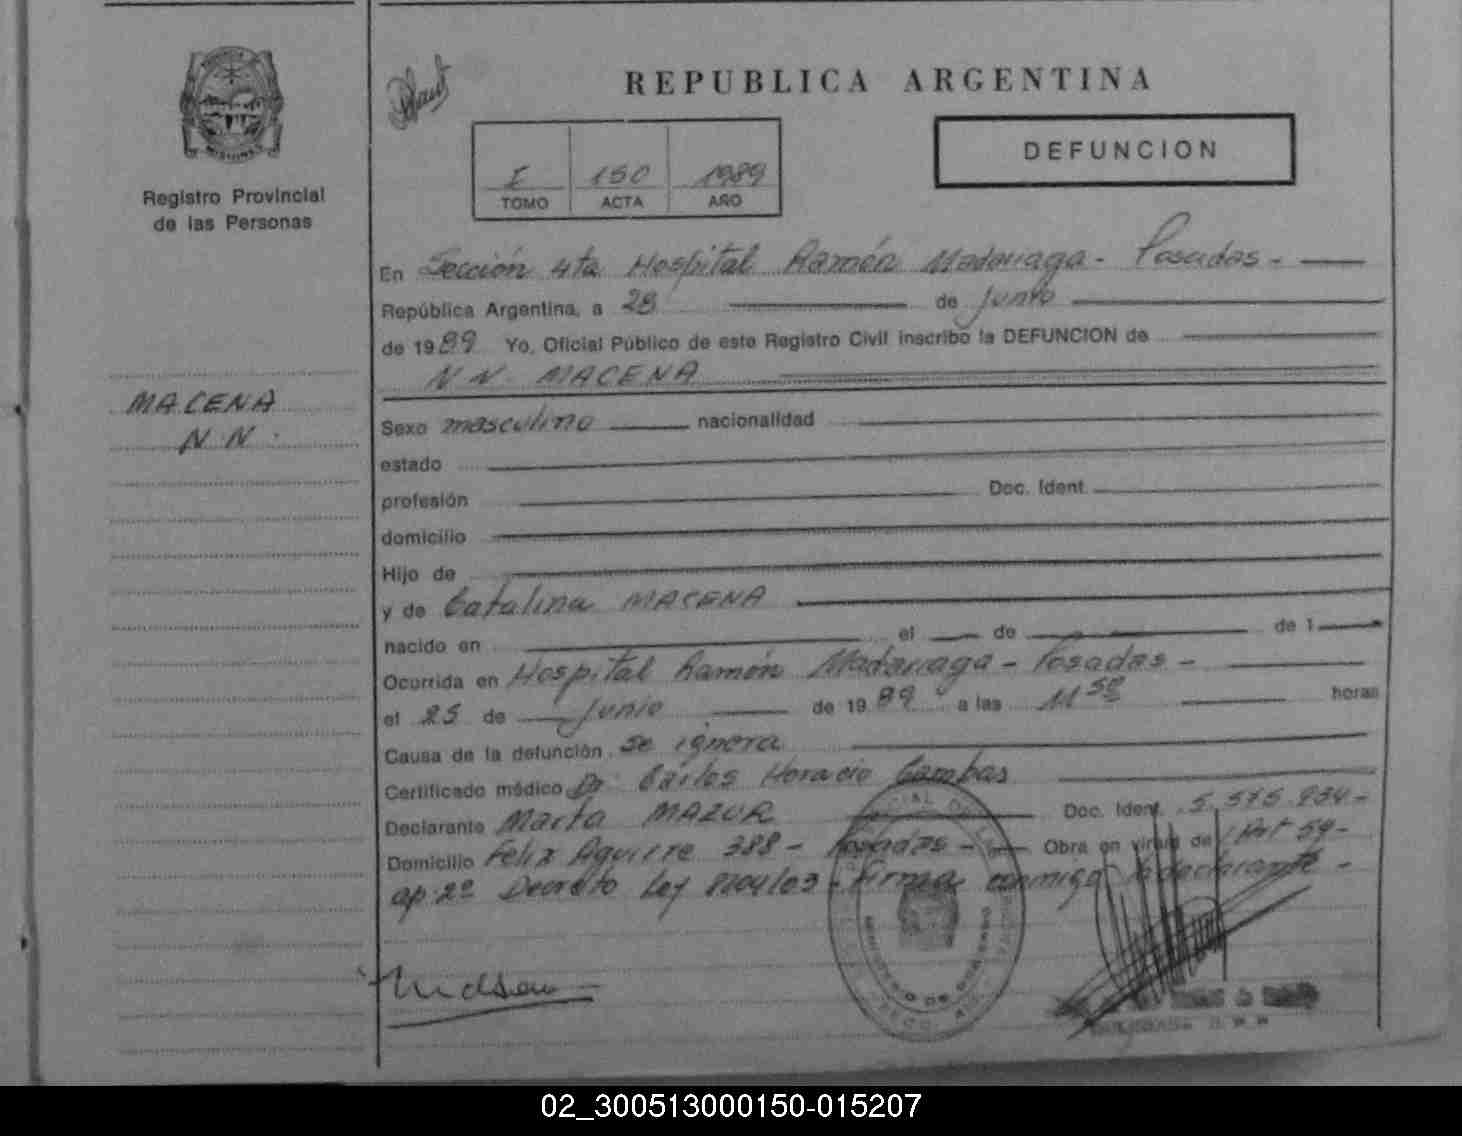 REPUBLICA ARGENTINA
DEFUNCION
I 150 1989
TOMO ACTA AÑO
MISIONES
Registro Provincial
de las Personas
MACENA
N N
En Sección 4ta Hospital Ramón Madariaga - Posadas -
República Argentina, a 28 de junio
de 1989 Yo, Oficial Público de este Registro Civil inscribo la DEFUNCION de
N N. MACENA
Sexo masculino nacionalidad
estado
profesión Doc. Ident.
domicilio
Hijo de
y de Catalina MACENA
nacido en el de de 1
Ocurrida en Hospital Ramón Madariaga - Posadas -
el 25 de junio de 1989 a las 11 50 horas
Causa de la defunción se ignora
Certificado médico Dr. Carlos Horacio Gambas
Declarante Marta MAZUR Doc. Ident. 5.575.934-
Domicilio Felix Aguirre 388 - Posadas - Obra en virtud de Art 59-
ap. 2º Decreto Ley - Firma conmigo la declarante -
02_300513000150-015207